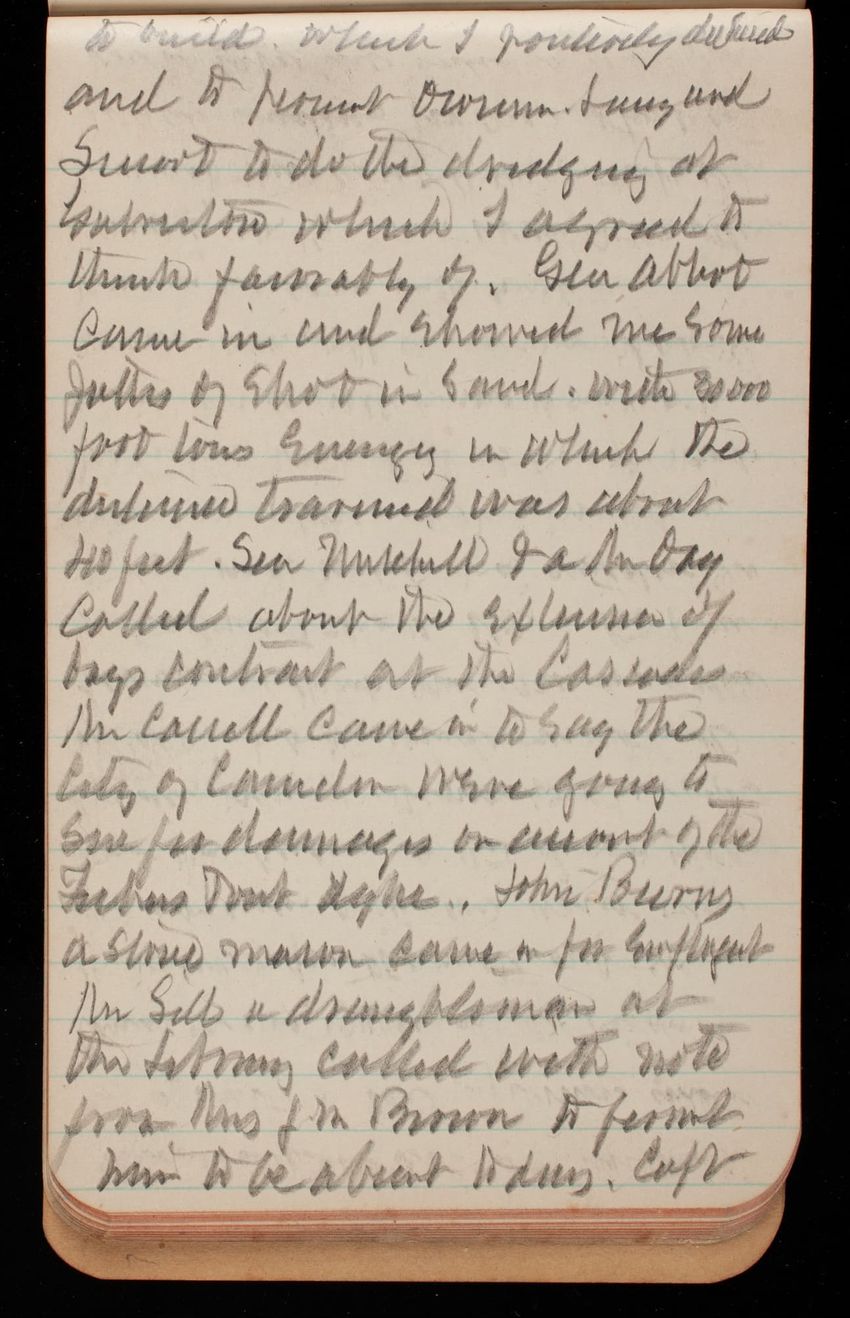 to build. which I positively declined
and to permit
Smoot to do the dredging at
Galveston which I agreed to
think favorably of. Gen Abbot
came in and showed me some
of shot in sand. with 30000
foot tons energy in which the
distance traversed was about
40 feet. Sen Mitchell & a Mr Day
called about the extension of
Days contract at the Cascades
Mr Carroll came in to say the
City of Camden were going to
sue for damages on account of the
John Burns
a stone mason came in for
Mr Sill a draughtsman at
the Library called with note
from Mrs J M Brown to permit
him to be absent today. Capt